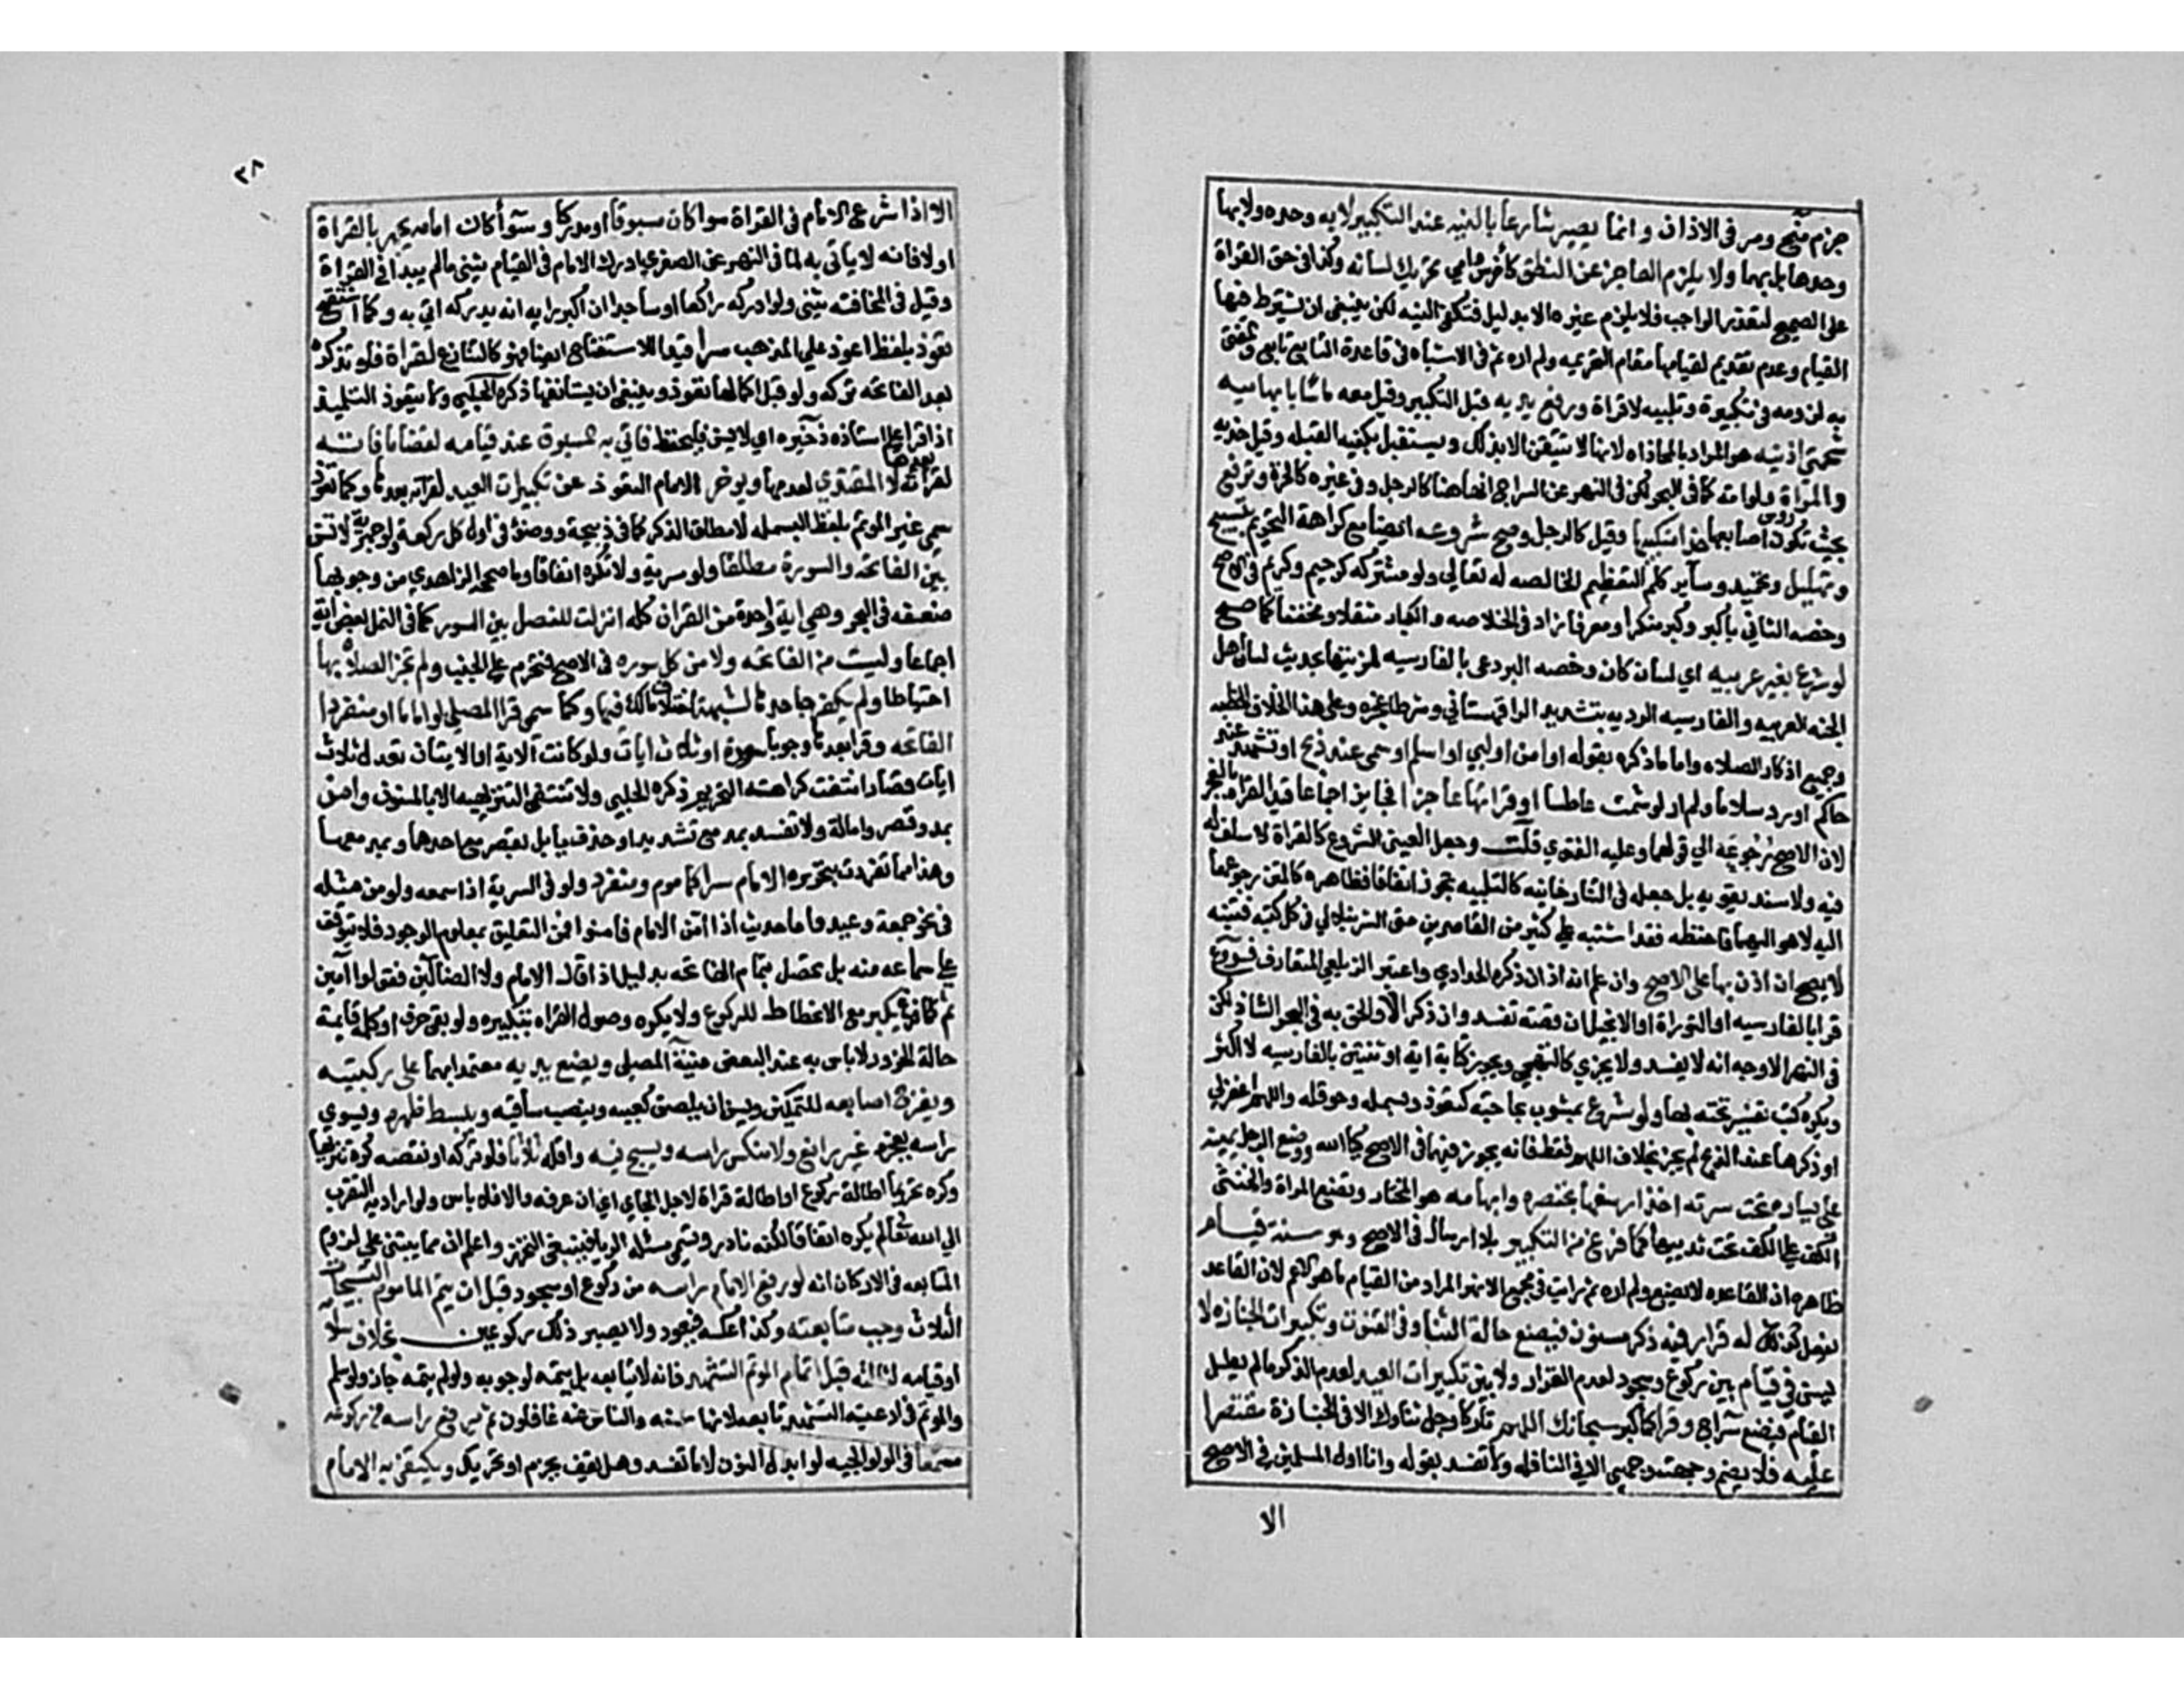 جزم منح ومر في الاذان وانما يصير شارعا بالنيه عند التكبير لا به وحده ولا بها
وحدها بل بهما ولا يلزم العاجز عن النطق كأخرس وامي تحريك لسانه وكذا في حق القراة
على الصحيح لتعذر الواجب فلا يلزم غيره الا بدليل فتكفي النيه لكن ينبغي ان يشترط فيها
القيام وعدم تقديم لقيامها مقام التحريمه ولم اره ثم في الاشباه في قاعدة التابع تابع والمفتي
به لزومه في تكبيرة وتلبيه لا قراة ورفع يديه قبل التكبير وقيل معه ماسا بابهاميه
شحمتي اذنيه هو المراد بالمحاذاه لانها لا تتيقن الا بذلك ويستقبل بكفيه القبله وقيل خديه
والمراة ولو امة كما في البحر لكن في النهر عن السراج انها هنا كالرجل وفي غيره كالحرة وترفع
بحيث تكون رؤس اصابعها حذا منكبيها وقيل كالرجل وصح شروعه ايضا مع كراهة التحريم بتسبيح
وتهليل وتحميد وساير كلم التعظيم الخالصه له تعالي ولو مشتركه كرحيم وكريم في الاصح
وخصه الثاني باكبر وكبير منكرا ومعرفا زاد في الخلاصه والكبار مثقلا ومخففا كما صح
لو شرع بغير عربيه اي لسان كان وخصه البردعي بالفارسيه لمزيتها بحديث لسان اهل
الجنه العربيه والفارسيه الدريه بتشديد الرا قهستاني وشرطا عجزه وعلى هذا الخلاف الخطبه
وجميع اذكار الصلاه واما ما ذكره بقوله او امن او لبي او اسلم او سمى عند ذبح او شهد عند
حاكم او رد سلاما ولم ار لو شمت عاطسا او قرا بها عاجزا فجايز اجماعا قيد القراه بالعجز
لان الاصح رجوعه الي قولهما وعليه الفتوي قلت وجعل العيني الشروع كالقراة لا سلف له
فيه ولا سند يقويه بل جعله في التتارخانيه كالتلبيه يجوز اتفاقا فظاهره كالمتن رجوعهما
اليه لا هو اليهما فاحفظه فقد اشتبه على كثير من القاصرين حتى الشرنبلالي في كل كتبه فتنبه
لا يصح ان اذن بها على الاصح وان علم انه اذان ذكره الحدادي واعتبر الزيلعي المتعارف فروع
قرا بالفارسيه او التوراة او الانجيل ان قصة تفسد وان ذكرا لا والحق به في البحر الشاذ لكن
في النهر الاوجه انه لا يفسد ولا يجزي كالتهجي ويجوز كتابة اية او ايتين بالفارسيه لا اكثر
ويكره كتب تفسير تحته بها ولو شرع بمشوب بحاجته كتعوذ وبسمله وحوقله واللهم اغفر لي
او ذكرها عند الذبح لم يجز بخلاف اللهم فقط فانه يجوز فيهما في الاصح كيا الله ووضع الرجل يمينه
على يساره تحت سرته اخذا رسغها بخنصره وابهامه هو المختار وتضع المراة والخنثى
الكف على الكف تحت ثدييها كما فرغ من التكبير بلا ارسال في الاصح وهو سنة قيام
ظاهره ان القاعد لا يضع ولم اره ثم رايت في مجمع الانهر المراد من القيام ما هو الاعم لان القاعد
يفعل كذلك له قرار فيه ذكر مسنون فيضع حالة الثنا وفي القنوت وتكبيرات الجنازه لا
يسن في قيام بين ركوع وسجود لعدم القرار ولا بين تكبيرات العيد لعدم الذكر ما لم يطل
القيام فيضع سراج وقرا كما كبر سبحانك اللهم تاركا وجل ثناؤك الا في الجنازة مقتصرا
عليه فلا يضم وجهت وجهي الا في النافله ولا تفسد بقوله وانا اول المسلمين في الاصح
الا
٣٨
الا اذا شرع الامام في القراة سوا كان مسبوقا او مدركا وسوآ كان امامه يجهر بالقراة
او لا فانه لا ياتي به لما في النهر عن الصغرى ادرك الامام في القيام يثني ما لم يبدا في القراة
وقيل في المخافته يثني ولو ادركه راكعا او ساجدا ان اكبر رايه انه يدركه اتي به وكما استفتح
تعوذ بلفظ اعوذ على المذهب سرا قيد للاستفتاح ايضا فهو كالتنازع لقراة فلو تذكره
بعد الفاتحه تركه ولو قبل اكمالها تعوذ وينبغي ان يستانفها ذكره الحلبي ولا يتعوذ التلميذ
اذا قرا على استاذه ذخيره اي لا يسن فليحفظ فياتي به المسبوق عند قيامه لقضا ما فاته
لقرائته لا المقتدي لعدمها ويوخر الامام التعوذ عن تكبيرات العيد لقراته بعدها وكما تعوذ
سمى غير الموتم بلفظ البسمله لا مطلق الذكر كما في ذبيحة ووضؤ في اول كل ركعة ولو جهرية لا تسن
بين الفاتحه والسورة مطلقا ولو سرية ولا تكره اتفاقا وما صححه الزاهدي من وجوبها
ضعفه في البحر وهي اية واحدة من القران كله انزلت للفصل بين السور كما في النمل بعض اية
اجماعا وليست من الفاتحه ولا من كل سوره في الاصح فتحرم على الجنب ولم تجز الصلاه بها
احتياطا ولم يكفر جاحدها لشبهة اختلاف مالك فيها وكما سمى قرا المصلي لو اماما او منفردا
الفاتحه وقرا بعدها وجوبا سورة او ثلاث ايات ولو كانت الاية او الايتان تعدل ثلاث
ايات قصار انتفت كراهة التحريم ذكره الحلبي ولا تنتفي التنزيهيه الا بالمسنون وامن
بمد وقصر وامالة ولا تفسد بمد مع تشديد او حذف يا بل بقصر مع احدهما وبمد معهما
وهذا مما تفردت بتحريره الامام سرا كماموم ومنفرد ولو في السرية اذا سمعه ولو من مثله
في نحو جمعة وعيد واما حديث اذا امن الامام فامنوا فمن التعليق بمعلوم الوجود فلا يتوقف
على سماعه منه بل يحصل بتمام الفاتحه بدليل اذا قال الامام ولا الضآلين فقولوا آمين
ثم كما فرغ يكبر مع الانحطاط للركوع ولا يكره وصول القراه بتكبيره ولو بقي حرف او كلمه فاتمه
حالة الخرور لا باس به عند البعض منية المصلي ويضع يديه معتمدا بهما على ركبتيه
ويفرج اصابعه للتمكين ويسن ان يلصق كعبيه وينصب ساقيه ويبسط ظهره ويسوي
راسه بعجزه غير رافع ولا منكس راسه ويسبح فيه واقله ثلاثا فلو تركه او نقصه كره تنزيها
وكره تحريما اطالة ركوع او اطالة قراة لاجل الجاي اي ان عرفه والا فلا باس ولو اراد به التقرب
الي الله تعالى لم يكره اتفاقا لكنه نادر وتسمى مسئلة الريا فينبغي التحرز واعلم ان مما يبتني على لزوم
المتابعه في الاركان انه لو رفع الامام راسه من ركوع او سجود قبل ان يتم الماموم التسبيحات
الثلاث وجب متابعته وكذا عكسه فيعود ولا يصير ذلك ركوعين بخلاف سلامه
او قيامه لثالثة قبل اتمام الموتم التشهد فانه لا يتابعه بل يتمه لوجوبه ولو لم يتمه جاز ولو سلم
والموتم في ادعية التشهد تابعه لانها سنة والناس عنه غافلون ثم يرفع راسه من ركوعه
مسمعا في الولوالجيه لو ابدل النون لاما تفسد وهل يقف بجزم او تحريك ويكتفي به الامام